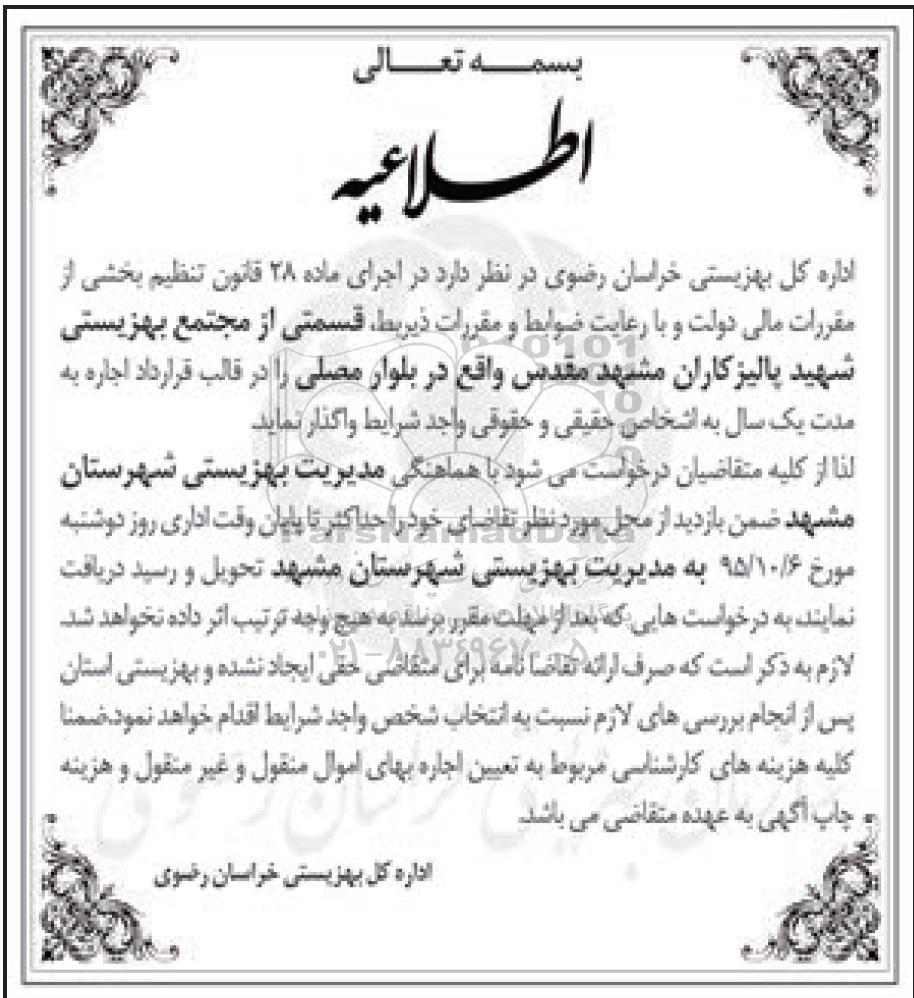 بسمه تعالی
اطلاعیه
اداره کل بهزیستی خراسان رضوی در نظر دارد در اجرای ماده ۲۸ قانون تنظیم بخشی از
مقررات مالی دولت و با رعایت ضوابط و مقررات ذیربط، قسمتی از مجتمع بهزیستی
شهید پالیزکاران مشهد مقدس واقع در بلوار مصلی را در قالب قرارداد اجاره به
مدت یک سال به اشخاص حقیقی و حقوقی واجد شرایط واگذار نماید.
لذا از کلیه متقاضیان درخواست می شود با هماهنگی مدیریت بهزیستی شهرستان
مشهد ضمن بازدید از محل مورد نظر تقاضای خود را حداکثر تا پایان وقت اداری روز دوشنبه
مورخ ۹۵/۱۰/۶ به مدیریت بهزیستی شهرستان مشهد تحویل و رسید دریافت
نمایند، به درخواست هایی که بعد از مهلت مقرر برسد به هیچ وجه ترتیب اثر داده نخواهد شد.
لازم به ذکر است که صرف ارائه تقاضا نامه برای متقاضی حقی ایجاد نشده و بهزیستی استان
پس از انجام بررسی های لازم نسبت به انتخاب شخص واجد شرایط اقدام خواهد نمود.ضمنا
کلیه هزینه های کارشناسی مربوط به تعیین اجاره بهای اموال منقول و غیر منقول و هزینه
چاپ آگهی به عهده متقاضی می باشد.
اداره کل بهزیستی خراسان رضوی
ParsNamadData
۰۲۱-۸۸۳۴۹۶۷۰-۵